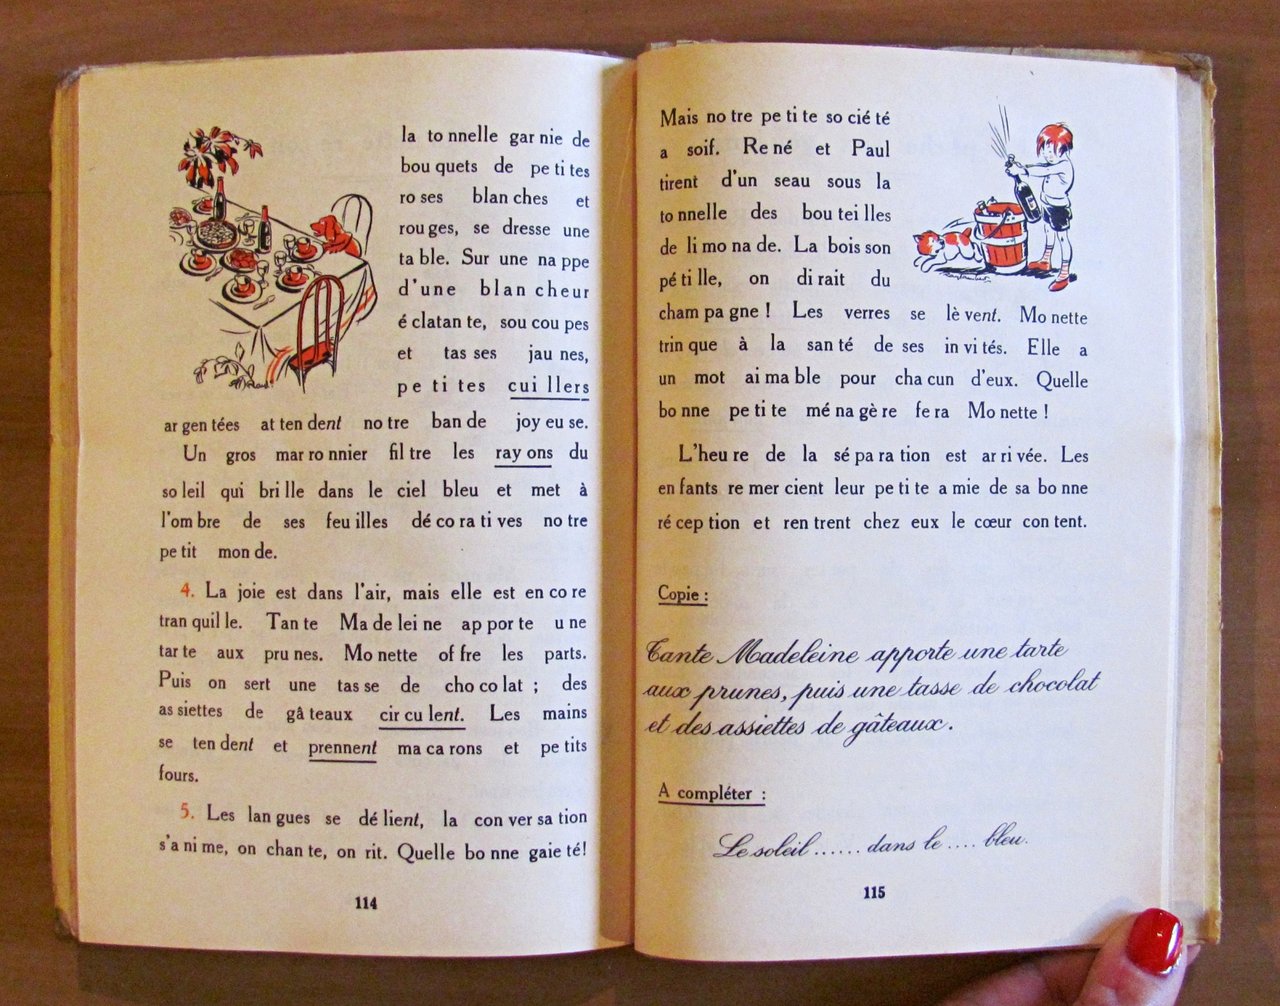 la to nnelle gar nie de
bou quets de pe ti tes
ro ses blan ches et
rou ges, se dresse une
ta ble. Sur une na ppe
d'une blan cheur
é cla tan te, sou cou pes
et tas ses jau nes,
pe ti tes cui llers
ar gen tées at ten dent no tre ban de joy eu se.
Un gros mar ro nnier fil tre les ray ons du
so leil qui bri lle dans le ciel bleu et met à
l'om bre de ses feu illes dé co ra ti ves no tre
pe tit mon de.
4. La joie est dans l'air, mais elle est en co re
tran quil le. Tan te Ma de lei ne ap por te u ne
tar te aux pru nes. Mo nette of fre les parts.
Puis on sert une tas se de cho co lat ; des
as siettes de gâ teaux cir cu lent. Les mains
se ten dent et prennent ma ca rons et pe tits
fours.
5. Les lan gues se dé lient, la con ver sa tion
s'a ni me, on chan te, on rit. Quelle bo nne gaie té!
114
Mais no tre pe ti te so cié té
a soif. Re né et Paul
tirent d'un seau sous la
to nnelle des bou tei lles
de li mo na de. La bois son
pé ti lle, on di rait du
cham pa gne ! Les verres se lè vent. Mo nette
trin que à la san té de ses in vi tés. Elle a
un mot ai ma ble pour cha cun d'eux. Quelle
bo nne pe ti te mé na gè re fe ra Mo nette !
L'heu re de la sé pa ra tion est ar ri vée. Les
en fants re mer cient leur pe ti te a mie de sa bo nne
ré cep tion et ren trent chez eux le cœur con tent.
Copie :
Tante Madeleine apporte une tarte
aux prunes, puis une tasse de chocolat
et des assiettes de gâteaux.
A compléter :
Le soleil ...... dans le .... bleu.
115